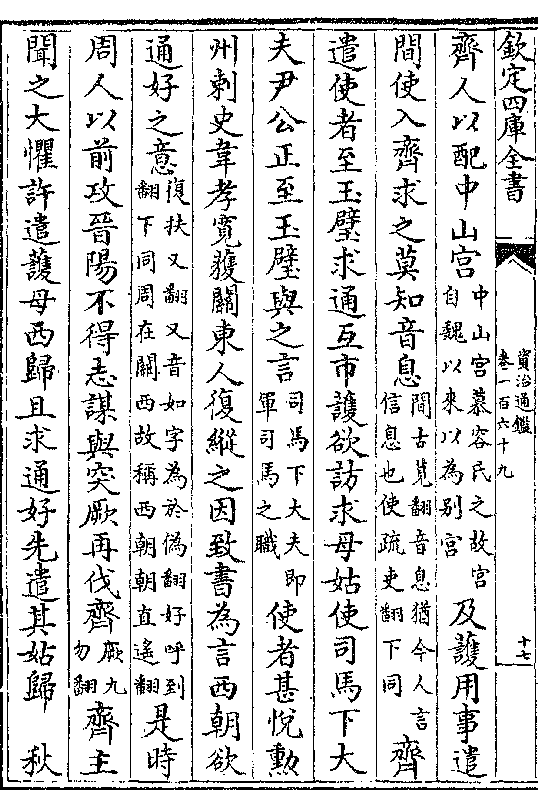 欽定四庫全書
資治通鑑
卷一百六十九
十七
齊人以配中山宮中山宮慕容氏之故宮自魏以來以為别宮及護用事遣
間使入齊求之莫知音息間古莧翻音息猶今人言信息也使疏吏翻下同齊
遣使者至玉壁求通互市護欲訪求母姑使司馬下大
夫尹公正至玉璧與之言司馬下大夫即軍司馬之職使者甚悅勲
州刺史韋孝寛獲關東人復縱之因致書為言西朝欲
通好之意復扶又翻又音如字為於偽翻好呼到翻下同周在關西故稱西朝朝直遙翻是時
周人以前攻晉陽不得志謀與突厥再伐齊厥九勿翻齊主
聞之大懼許遣護母西歸且求通好先遣其姑歸　秋